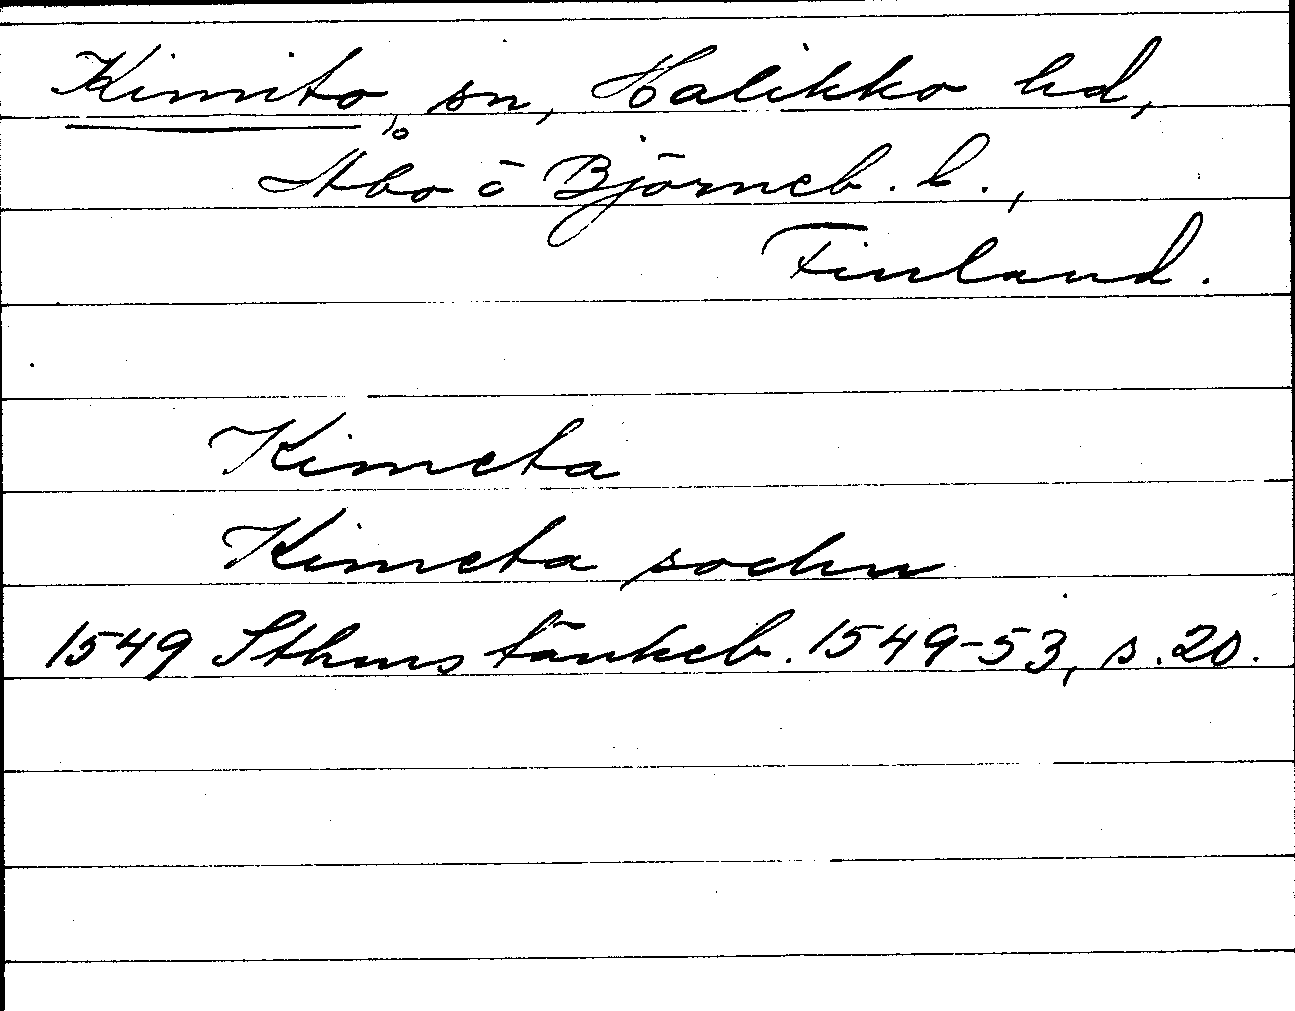 Kimito, sn, Halikko hd,
Åbo o Björneb. l.,
Finland.
Kimeta
Kimeta sochn
1549 Sthms tänkeb. 1549-53, s. 20.